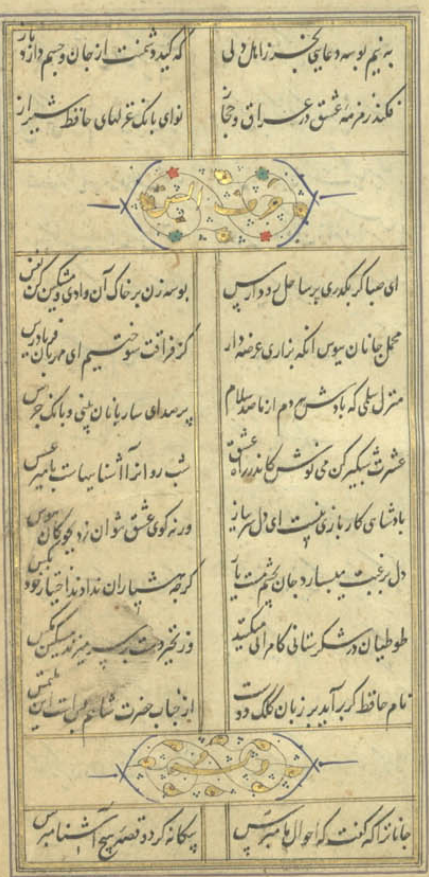 به نیم بوسه دعایی بخر ز اهل دلی که کید دشمنت از جان و جسم دارد باز
فکند زمزمهٔ عشق در عراق و حجاز نوای بانک غزلهای حافظ شیراز
حرف السین
ای صبا گر بگذری بر ساحل رود ارس بوسه زن بر خاک آن وادی و مشکین کن نفس
محمل جانان ببوس آنگه بزاری عرضه دار کز فراقت سوختیم ای مهربان فریادرس
منزل سلمی که بادش هر دم از ما صد سلام پر صدای ساربانان بینی و بانک جرس
عشرت شبگیر کن می نوش کاندر راه عشق شب روانرا آشناییهاست با میر عسس
بازی نیست ای دل سر بباز ورنه گوی عشق نتوان زد بچوگان هوس
دل برغبت میسپارد جان بچشم مست یار گرچه هشیاران ندادند اختیار خود بکس
طوطیان در شکرستان کامرانی میکنند وز تحیر دست بر سر میزند مسکین مگس
نام حافظ گر برآید بر زبان کلک دوست از جناب حضرت شاهم بس است این ملتمس
وله
جانا ترا که گفت که احوال ما مپرس بیگانه گرد و قصه هیچ آشنا مپرس